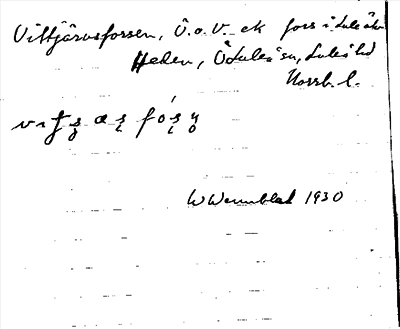 Vittjärvsforsen, Ö.o.V. ek fors i Luleälv
Heden, ÖLuleå sn, Luleå tld
Norrb. l.
W Wennblad 1930